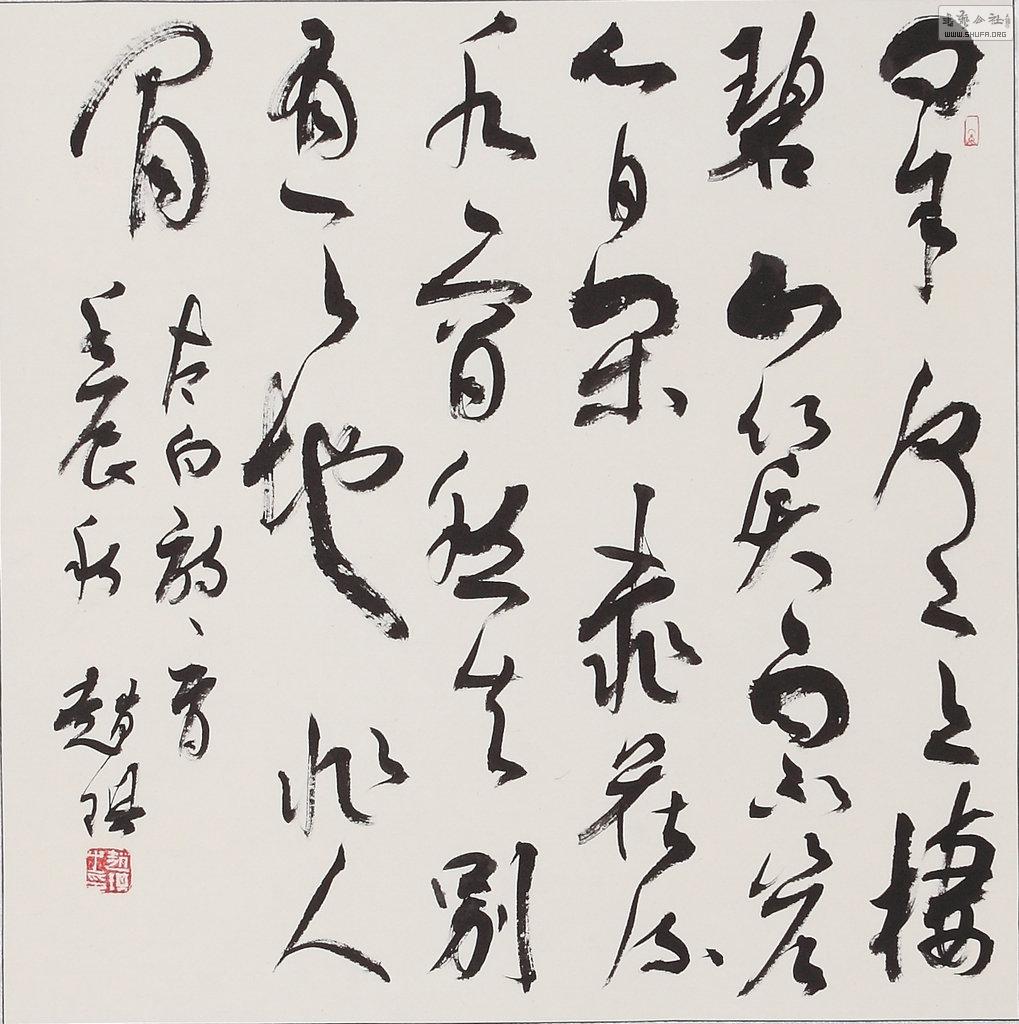 問余何意棲
碧山笑而不答
心自閑桃花流
水窅然去別
有天地非人
間
太白詩一首
壬辰秋 趙琪
书法公社
WWW.SHUFA.ORG